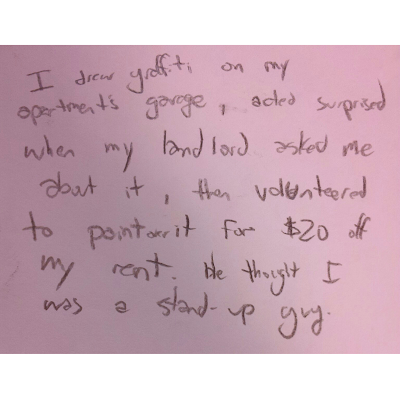 I drew graffiti on my
apartments garage, acted surprised
when my landlord asked me
about it, then volunteered
to paint over it for $20 off
my rent. He thought I
was a stand-up guy.